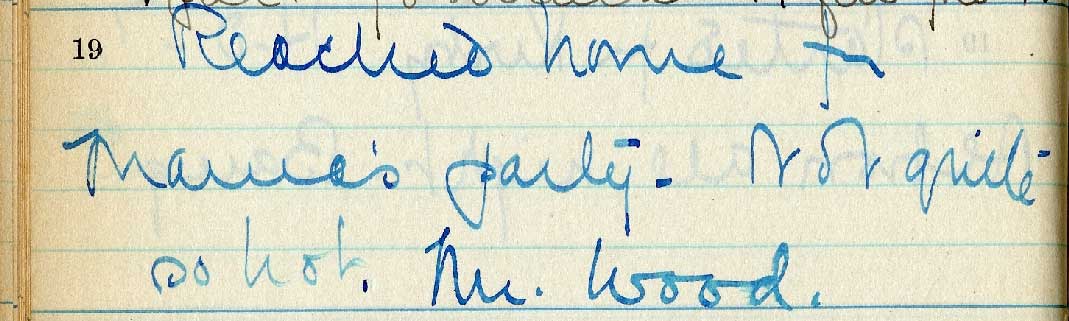 19 Reached home for
Mama's party - Not quite
so hot. Mr. Wood.